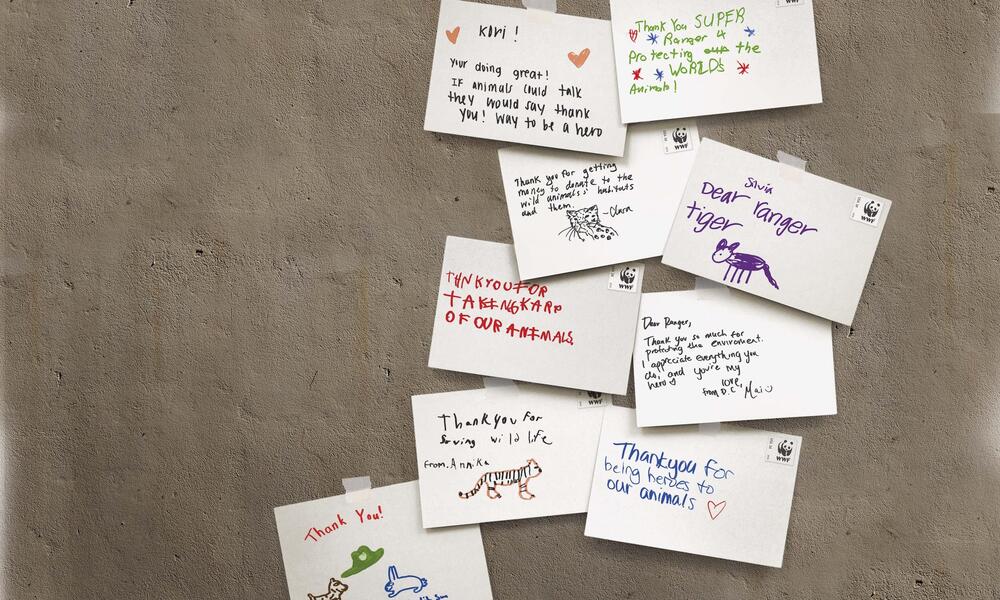 KORI !
Your doing great!
IF animals could talk
they would say thank
you! Way to be a hero
Thank You SUPER
Ranger 4
Protecting the
WORLDS
Animals!
WWF
Thank you for getting
money to donate to the
wild animals
and them.
-Clara
WWF
Silvia
Dear ranger
tiger
WWF
THNKYOUFOR
TAKENGKARP
OF OUR ANIMALS
WWF
Dear Ranger,
Thank you so much for
protecting the enviroment.
I appreciate everything you
do, and you're my
hero
love,
from D.C Mai
Thankyou for
Saving wild life
From. Annika
Thankyou for
being heroes to
our animals
WWF
Thank You!